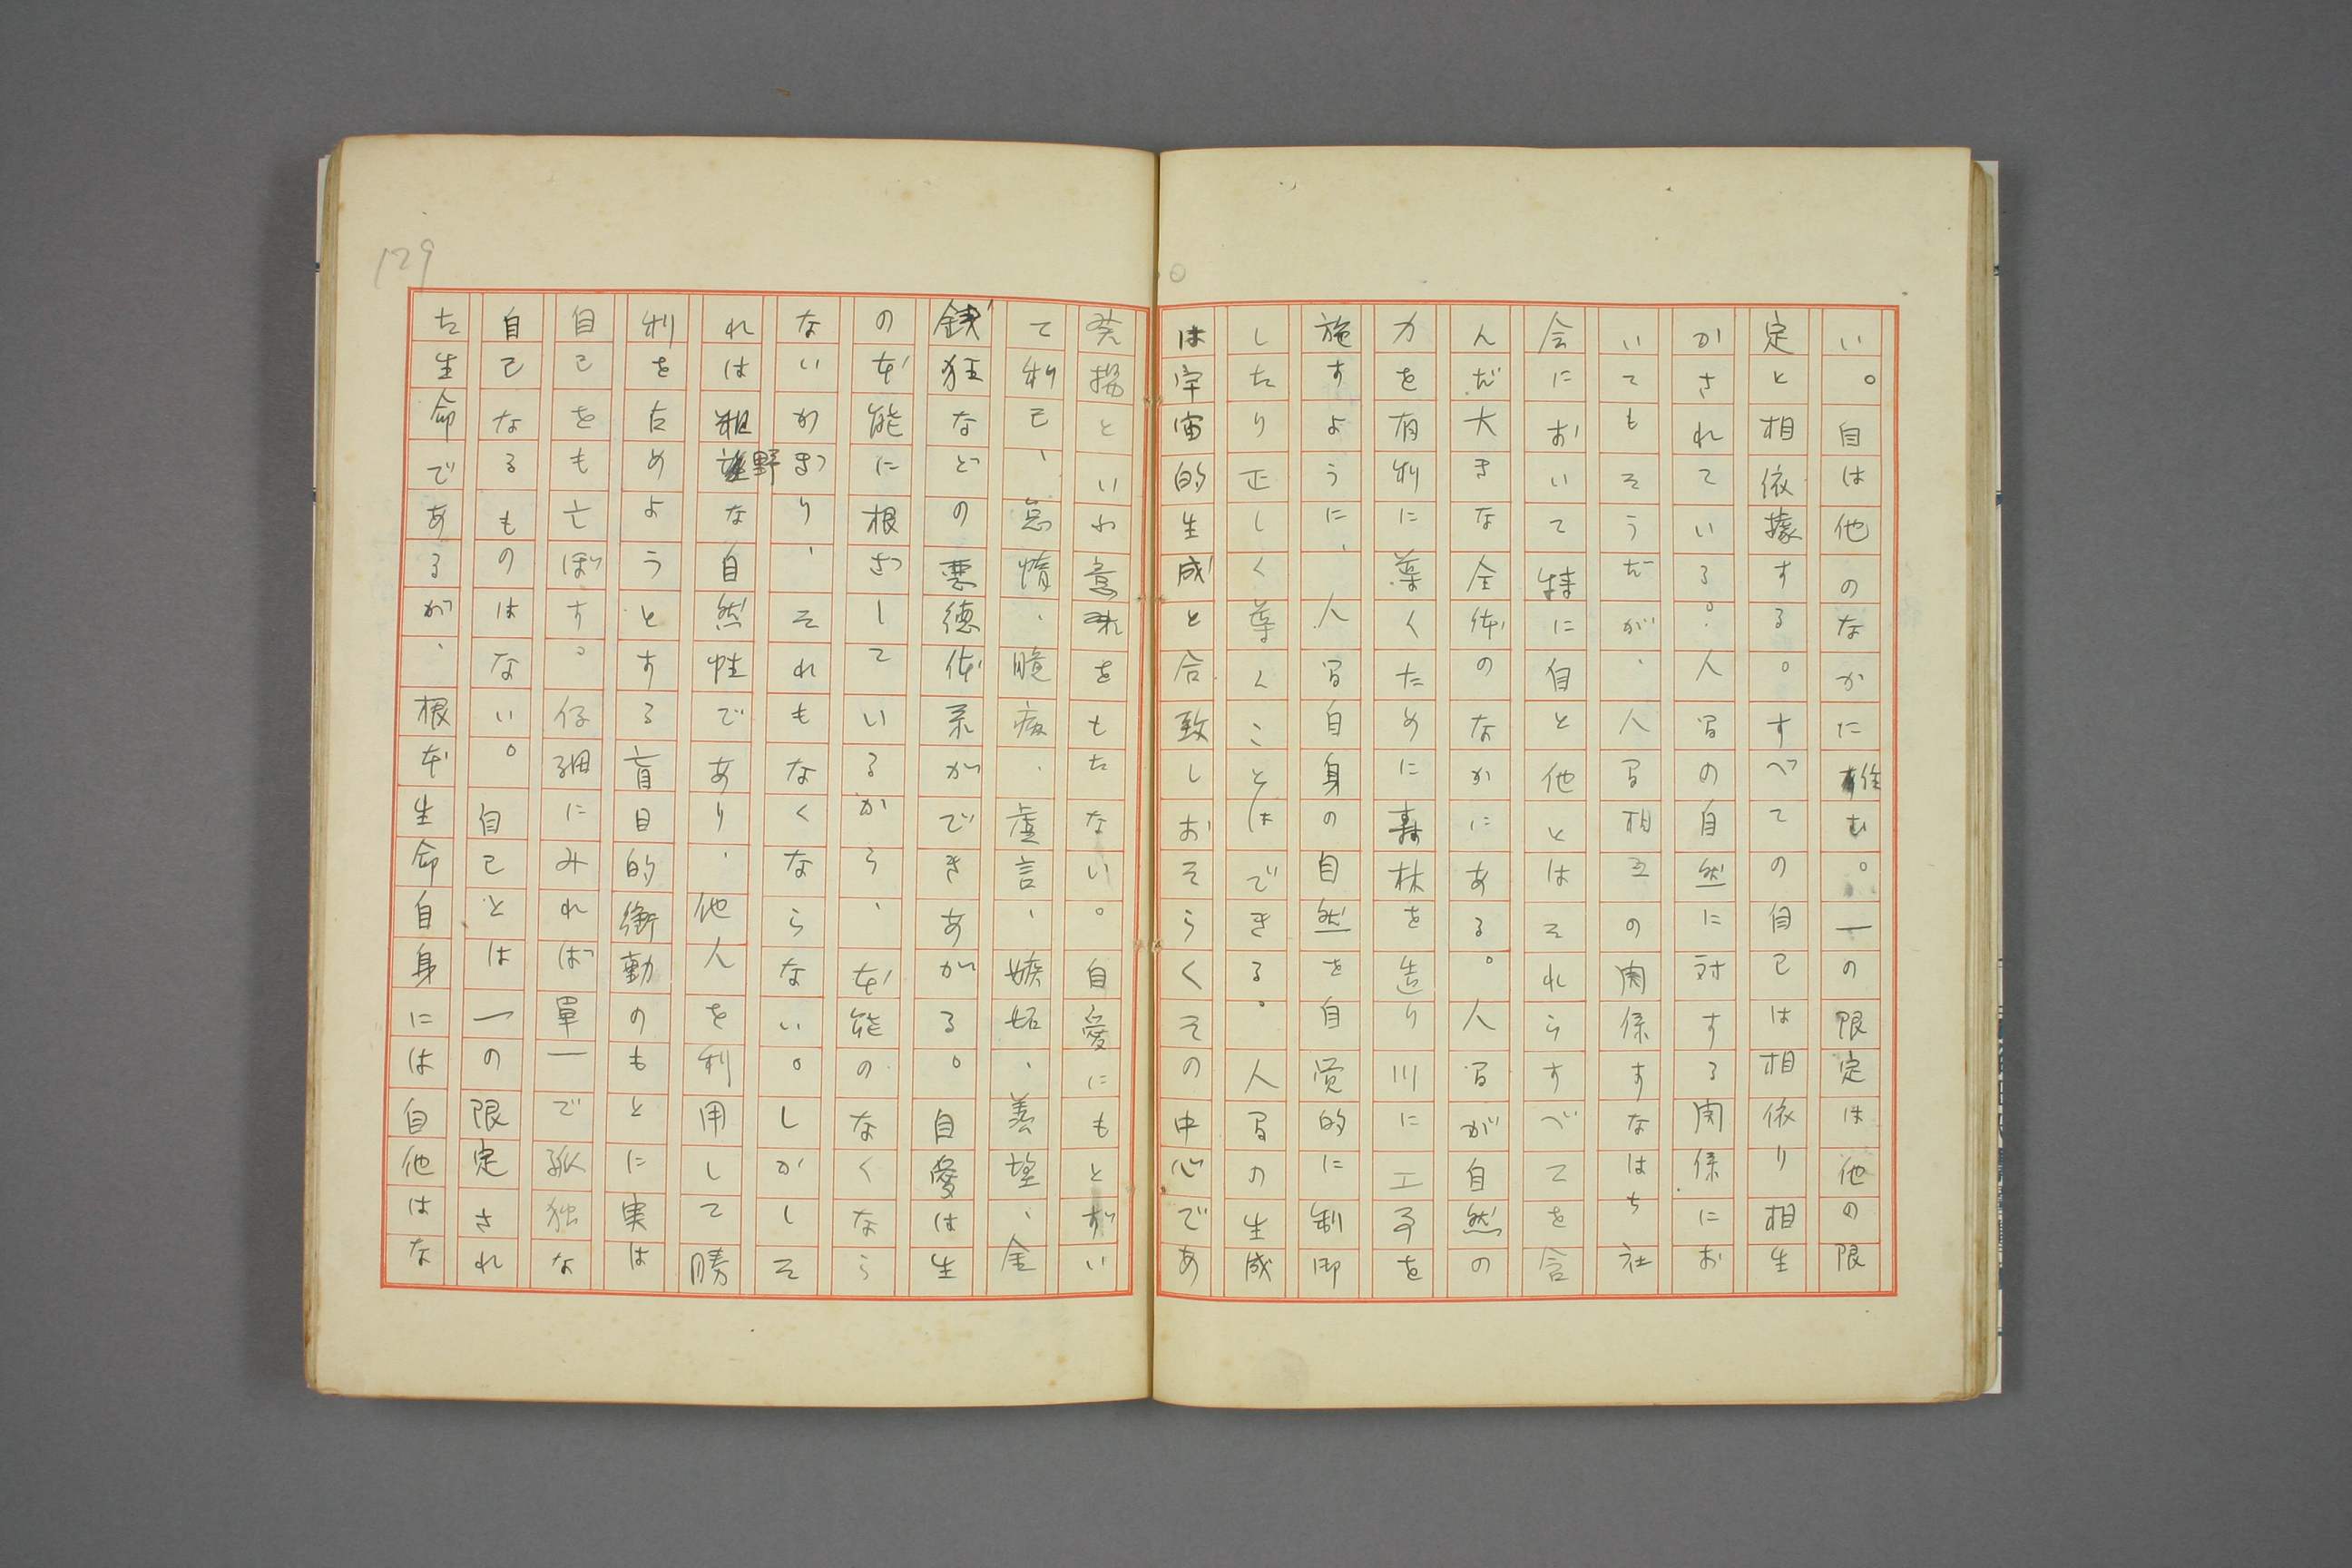 い。自は他のなかに住む。一の限定は他の限
定と相依據する。すべての自己は相依り相生
かされている。人間の自然に対する関係にお
いてもそうだが、人間相互の関係すなはち社
会において特に自と他とはそれらすべてを含
んだ大きな全体のなかにある。人間が自然の
力を有利に導くために森林を造り川に工事を
施すように、人間自身の自然を自覚的に制御
したり正しく導くことはできる。人間の生成
は宇宙的生成と合致しおそらくその中心であ
発揚といわ意味をもたない。自愛にもとずい
て利己、怠惰、臆病、虚言、嫉妬、羨望、金
銭狂などの悪徳体系ができあがる。自愛は生
の本能に根ざしているから、本能のなくなら
ないかぎり、それもなくならない。しかしそ
れは粗野な自然性であり、他人を利用して勝
利を占めようとする盲目的衝動のもとに実は
自己をも亡ぼす。仔細にみれば單一で孤独な
自己なるものはない。自己とは一の限定され
た生命であるが、根本生命自身には自他はな
129